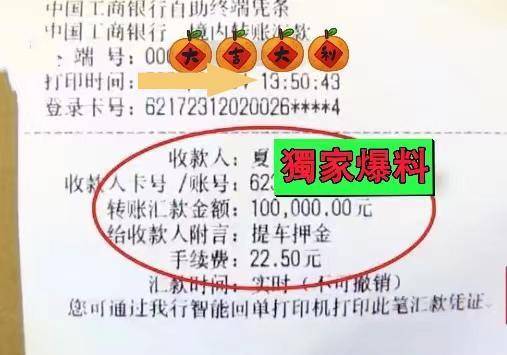 中国工商银行自助终端凭条
中国工商银行 境内转账汇款
端 号：000
大吉大利
打印时间： 13:50:43
登录卡号：62172312020026****4
收款人：夏
獨家爆料
收款人卡号 /账号：623
转账汇款金额：100,000.00元
给收款人附言：提车押金
手续费：22.50元
汇款时间：实时（不可撤销）
您可通过我行智能回单打印机打印此笔汇款凭证